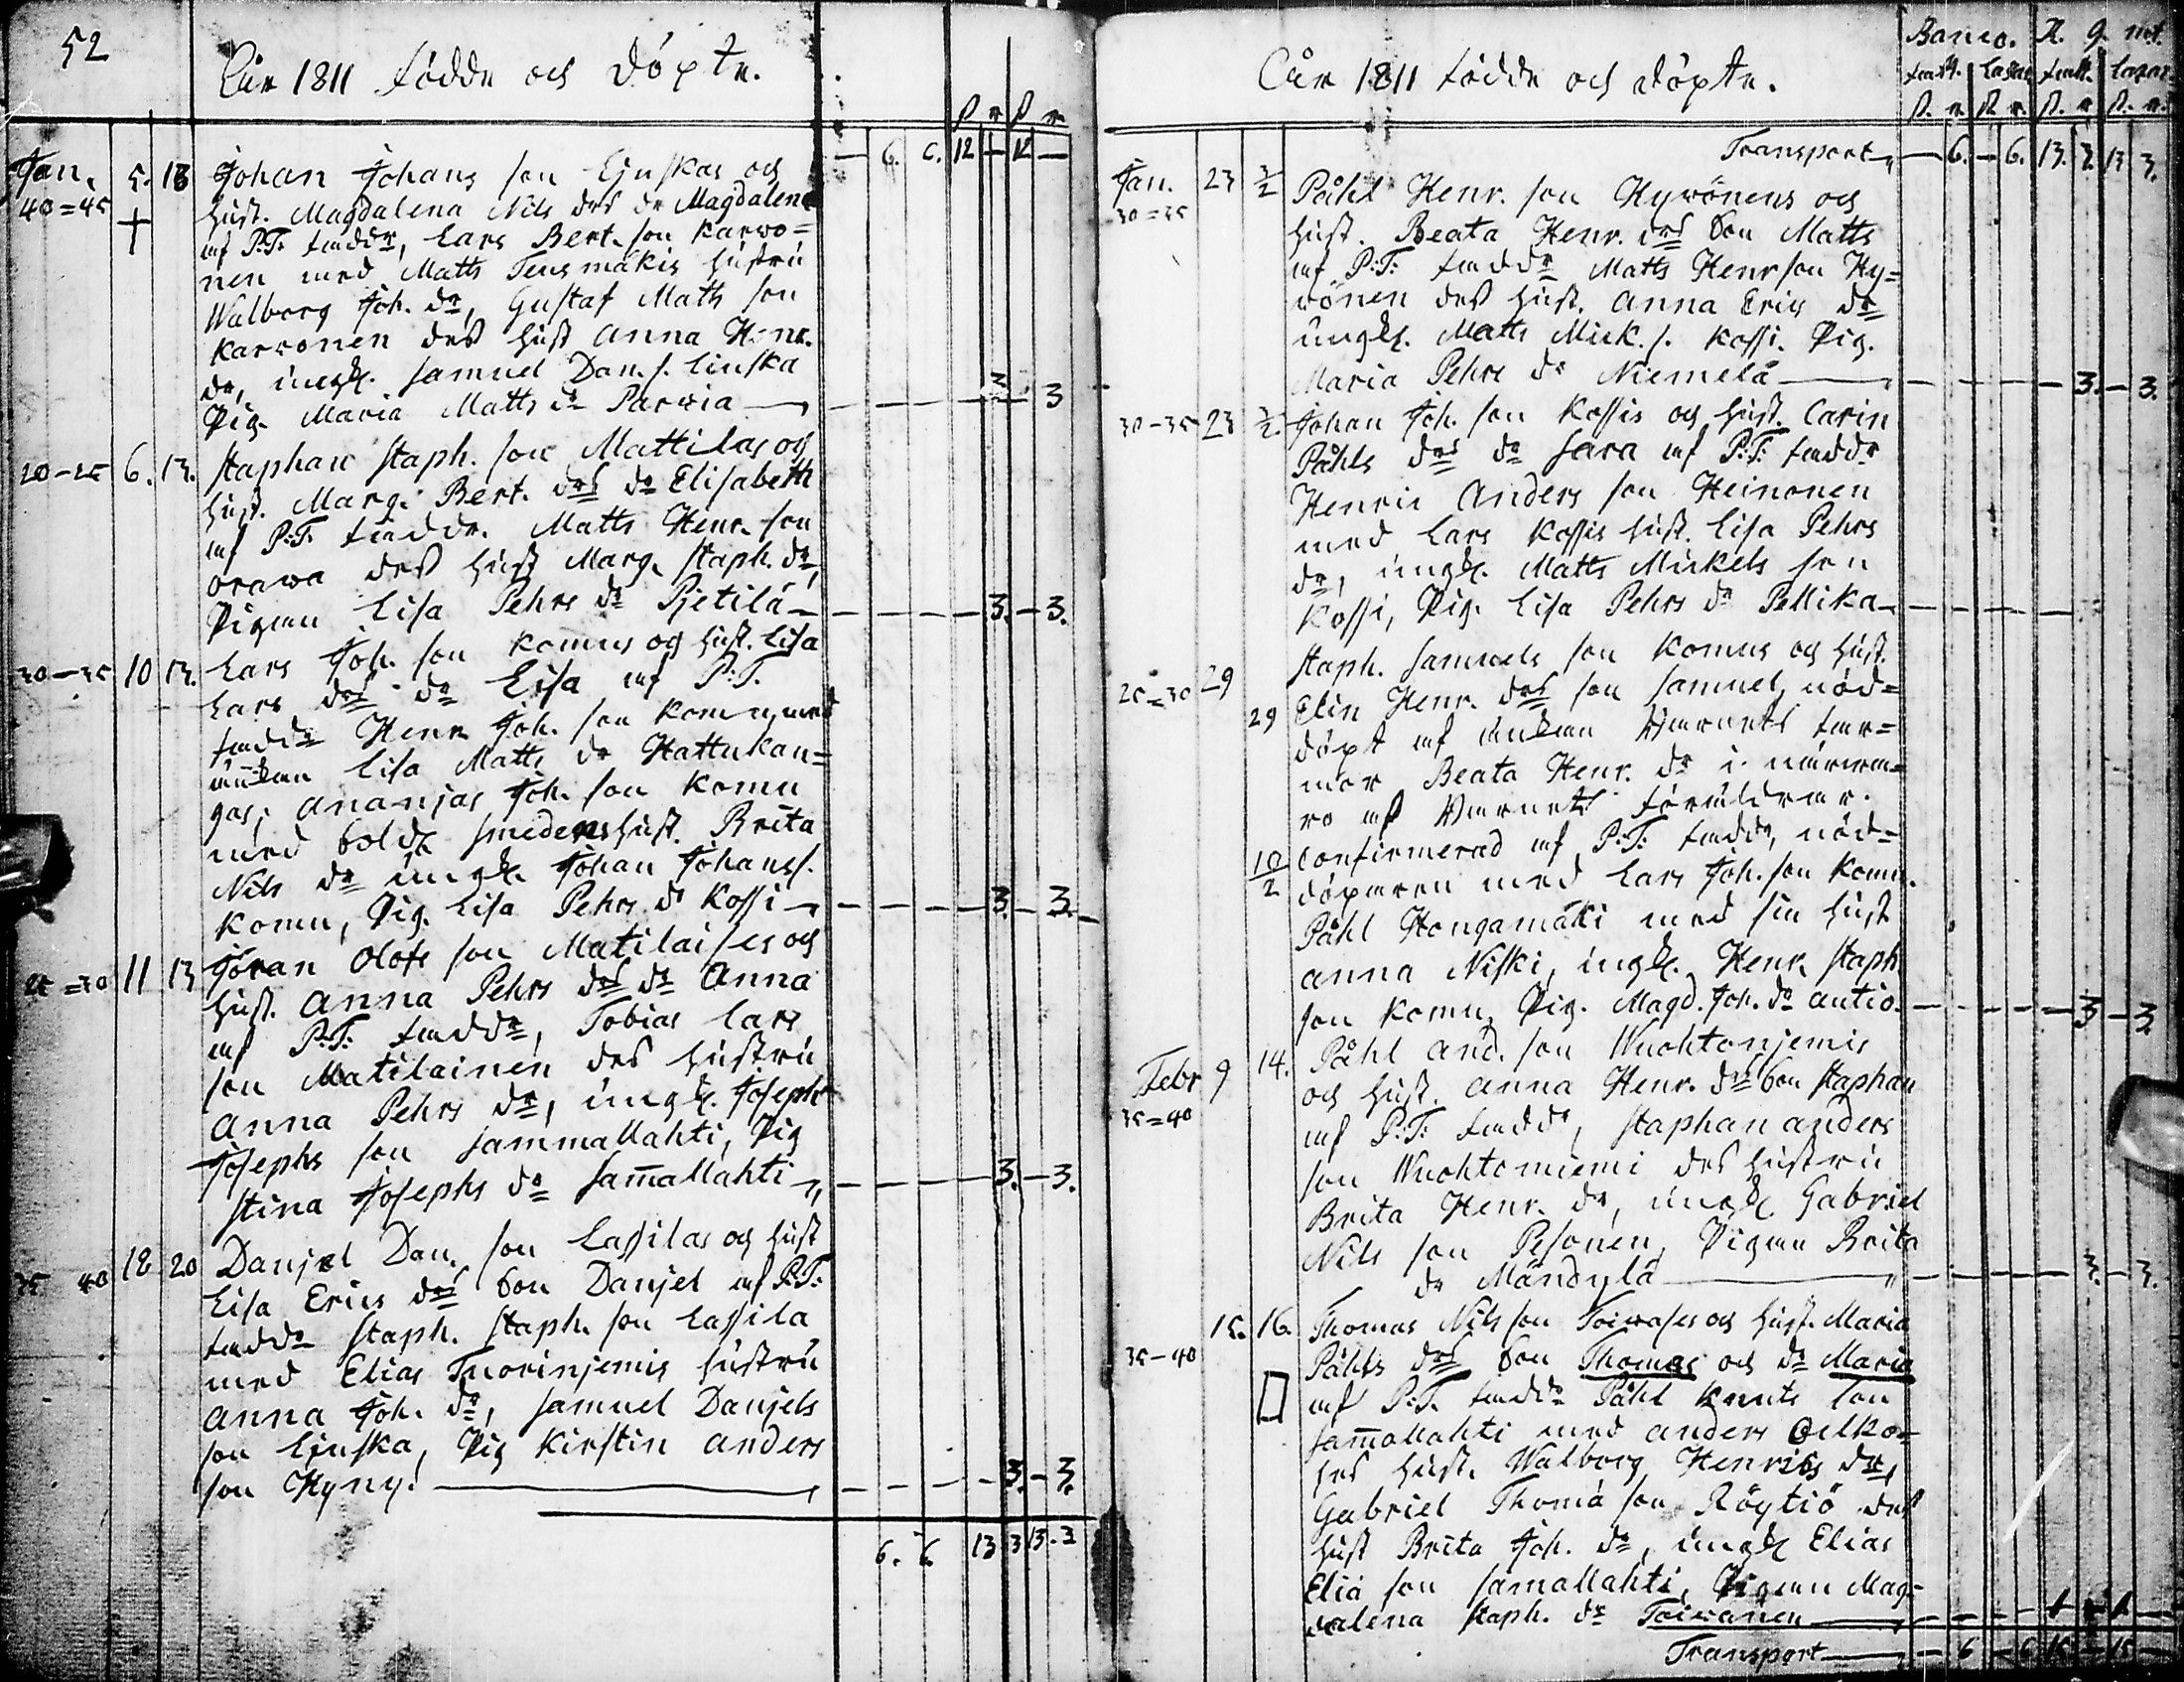 52
Åår 1811 födde och döpte.
ß r ß r
Jan. 5. 13 Johan Johans son Liuskas och — 6. 6. 12 — 12 —
40=45 hust. Magdalena Nils drs dr Magdalena
af P:T: fadd:r, Lars Bert. son Karvo=
nen med Matts Tensmäkis hustru
Walborg Joh. dr, Gustaf Matts son
Karvonen des hust Anna Henr.
dr, ungk. Samuel Dan. s. Liuska
Pig. Maria Matts dr Parvia — 3 3
20-25 6. 13. Staphan Staph. son Mattilas och
hust. Marg. Bert. drs dr Elisabeth
af P:T: faddr. Matts Henr. son
Orawa des hust Marg. Staph. dr,
Pigan Lisa Pehrs dr Pjetilä — 3. — 3.
30-35 10 13. Lars Joh. son Komus och hust. Lisa
Lars drs dr Lisa af P:T.
faddr Henr. Joh. son Komu, med
änkan Lisa Matts dr Hattukan=
gas, Ananjas Joh. son Komu
med Sold. smedens hust. Brita
Nils dr ungk. Johan Johans s.
Komu, Pig. Lisa Pehrs dr Kossi — 3. — 3.
25=30 11 13 Jöran Olofs son Matilaises och
hust. Anna Pehrs drs dr Anna
af P:T: faddr, Tobias Lars
son Matilainen des hustru
Anna Pehrs dr, ungk. Joseph
Josephs son Sammallahti, Pig
Stina Josephs dr Samallahti — 3. — 3.
35 40 18 20 Danjel Dan. son Lassilas och hust
Lisa Erics drs son Danjel af P:T:
faddr Staph. Staph. son Lassila
med Elias Tuorinjemis hustru
Anna Joh. dr, Samuel Danjels
son Liuska, Pig Kirstin Anders
son Hyny. — 3. — 3.
6. 6. 13 3 13. 3
Åår 1811 födde och döpte.
Banco. R. g. mt.
ß. r. ß r. ß. r ß. r.
Transport — 6. — 6. 13. 3. 13 3.
Jan. 23 3/2 Påhl Henr. son Hyvönens och
30=35 hust. Beata Henr. drs son Matts
af P:T: faddr Matts Henr son Hy=
vönen des hust. Anna Erics dr
ungk. Matts Mick. s. Kossi. Pig.
Maria Pehrs dr Niemelä — 3. — 3.
30-35 23 3/2. Johan Joh. son Kossis och hust. Carin
Påhls drs dr Sara af P:T: faddr
Henric Anders son Heinonen
med Lars Kossis hust. Lisa Pehrs
dr, ungk. Matts Mickels son
Kossi, Pig. Lisa Pehrs dr Pellika —
25=30 29 Staph. Samuels son Komus och hust.
29 Elin Henr. drs son Samuel, nöd=
döpt af änkan Barnets far=
mor Beata Henr. dr i närva=
ro af Barnets föräldrar.
10/2 Confirmerad af P:T: faddr, nöd=
döparen med Lars Joh. son Komu.
Påhl Hongamäki med sin hust
Anna Niski, ungk. Henr. Staph
son Komu, Pig. Magd. Joh. dr Antio. — 3 — 3.
Febr 9 14. Påhl And. son Wuohtonjemis
35=40 och hust. Anna Henr. drs son Staphan
af P:T: faddr, Staphan Anders
son Wuohtoniemi des hustru
Brita Henr. dr, ungk. Gabriel
Nils son Pesonen, Pigan Brita
dr Mändylä — 3. — 3.
15. 16. Thomas Nils son Toivases och hust. Maria
35-40 Påhls drs son Thomas och dr Maria
af P:T. faddr Påhl Knuts son
Samallahti med Anders Oilko=
hus hust. Walborg Henrics dr,
Gabriel Thomä son Röytiö des
hust Brita Joh. dr, ungk Elias
Eliä son Samallahti, Pigan Mag=
dalena Staph. dr Toivanen —
Transport — 6 — 6 15 — 15 —